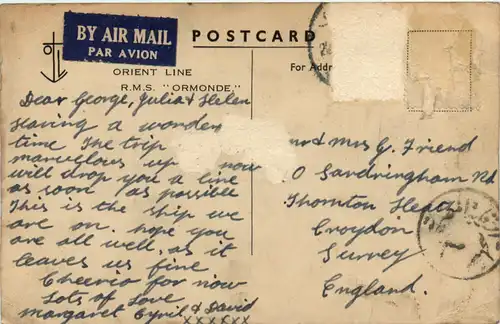 BY AIR MAIL
PAR AVION
POSTCARD
ORIENT LINE
R.M.S. "ORMONDE,"
For Addr
Dear George, Julia & Helen
Having a wonder
time The trip
marvellous up now
will drop you a line
as soon as possible
This is the ship we
are on. hope you
are all well, as it
leaves us fine
Cheerio for now
Lots of Love
Margaret Cyril & David
xxxxxx
Mr and Mrs G. Friend
0 Sandringham Rd
Thornton Heath
Croydon
Surrey
England.